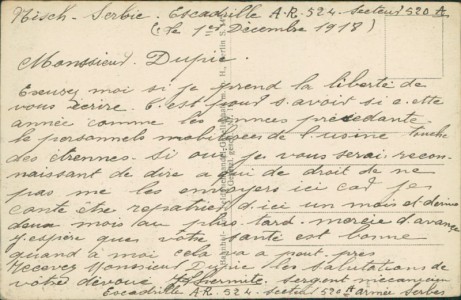 Nisch - Serbie. Escadrille A.R. 524. secteur 520 A
(le 1er Décembre 1918)
Monsieur Dupié.
Escusez moi si je prend la liberté de
vous écrire. C'est pour s.avoir si cette
année comme les années précedante
le personnels mobilisées de l'usine touche
des étrennes. Si oui je vous serai recon-
naissant de dire a qui de droit de ne
pas me les envoyers ici car je
conte être repatrié d'ici un mois et demie
deux mois au plus tard. mercie d'avance
J'espère ques votre santé est bonne
quand a moi cela va a peut près
Recevez Monsieur Dupié les salutations de
votre dévoué Lhermite. sergent mécanicien
Escadrille A.R. 524 secteur 520 A armée Serbes